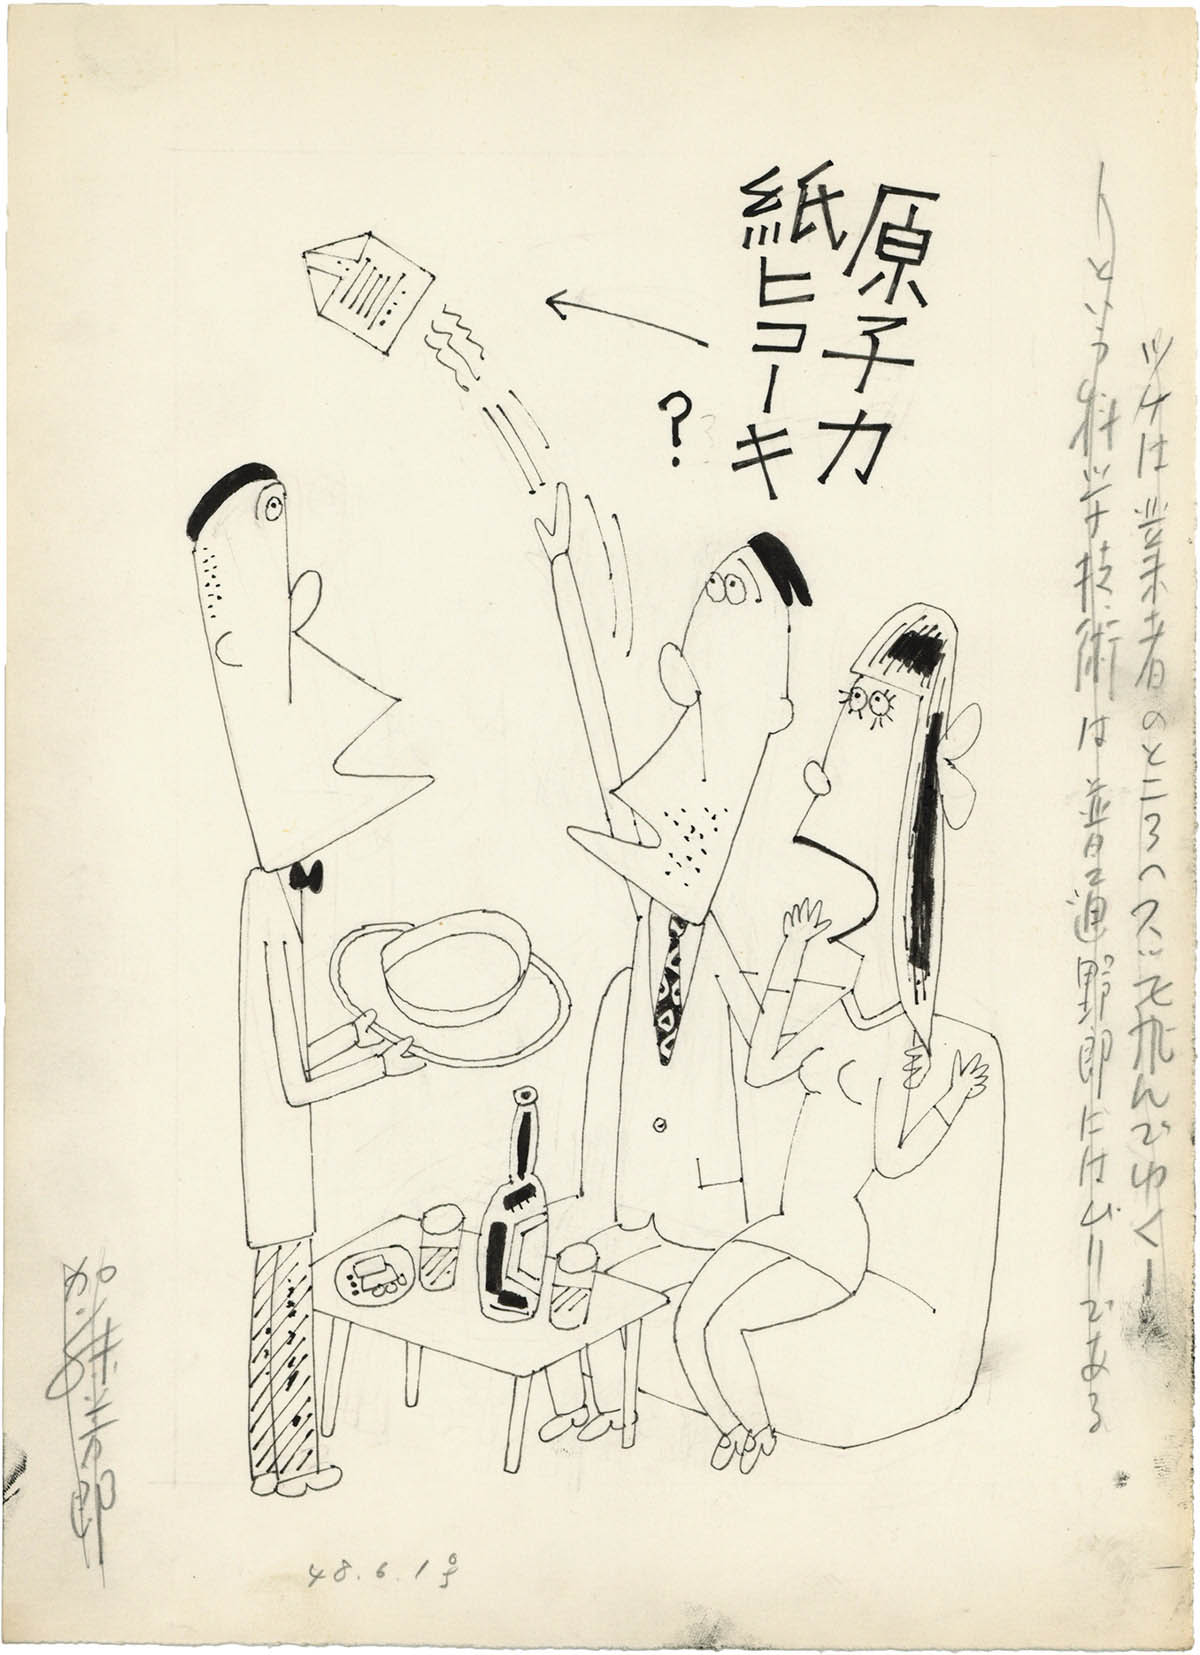 ツケは業者のところへ飛んでゆくー
りという科学技術は普通野郎にはムリである
原子力
紙ヒコーキ
?
48.6.1号